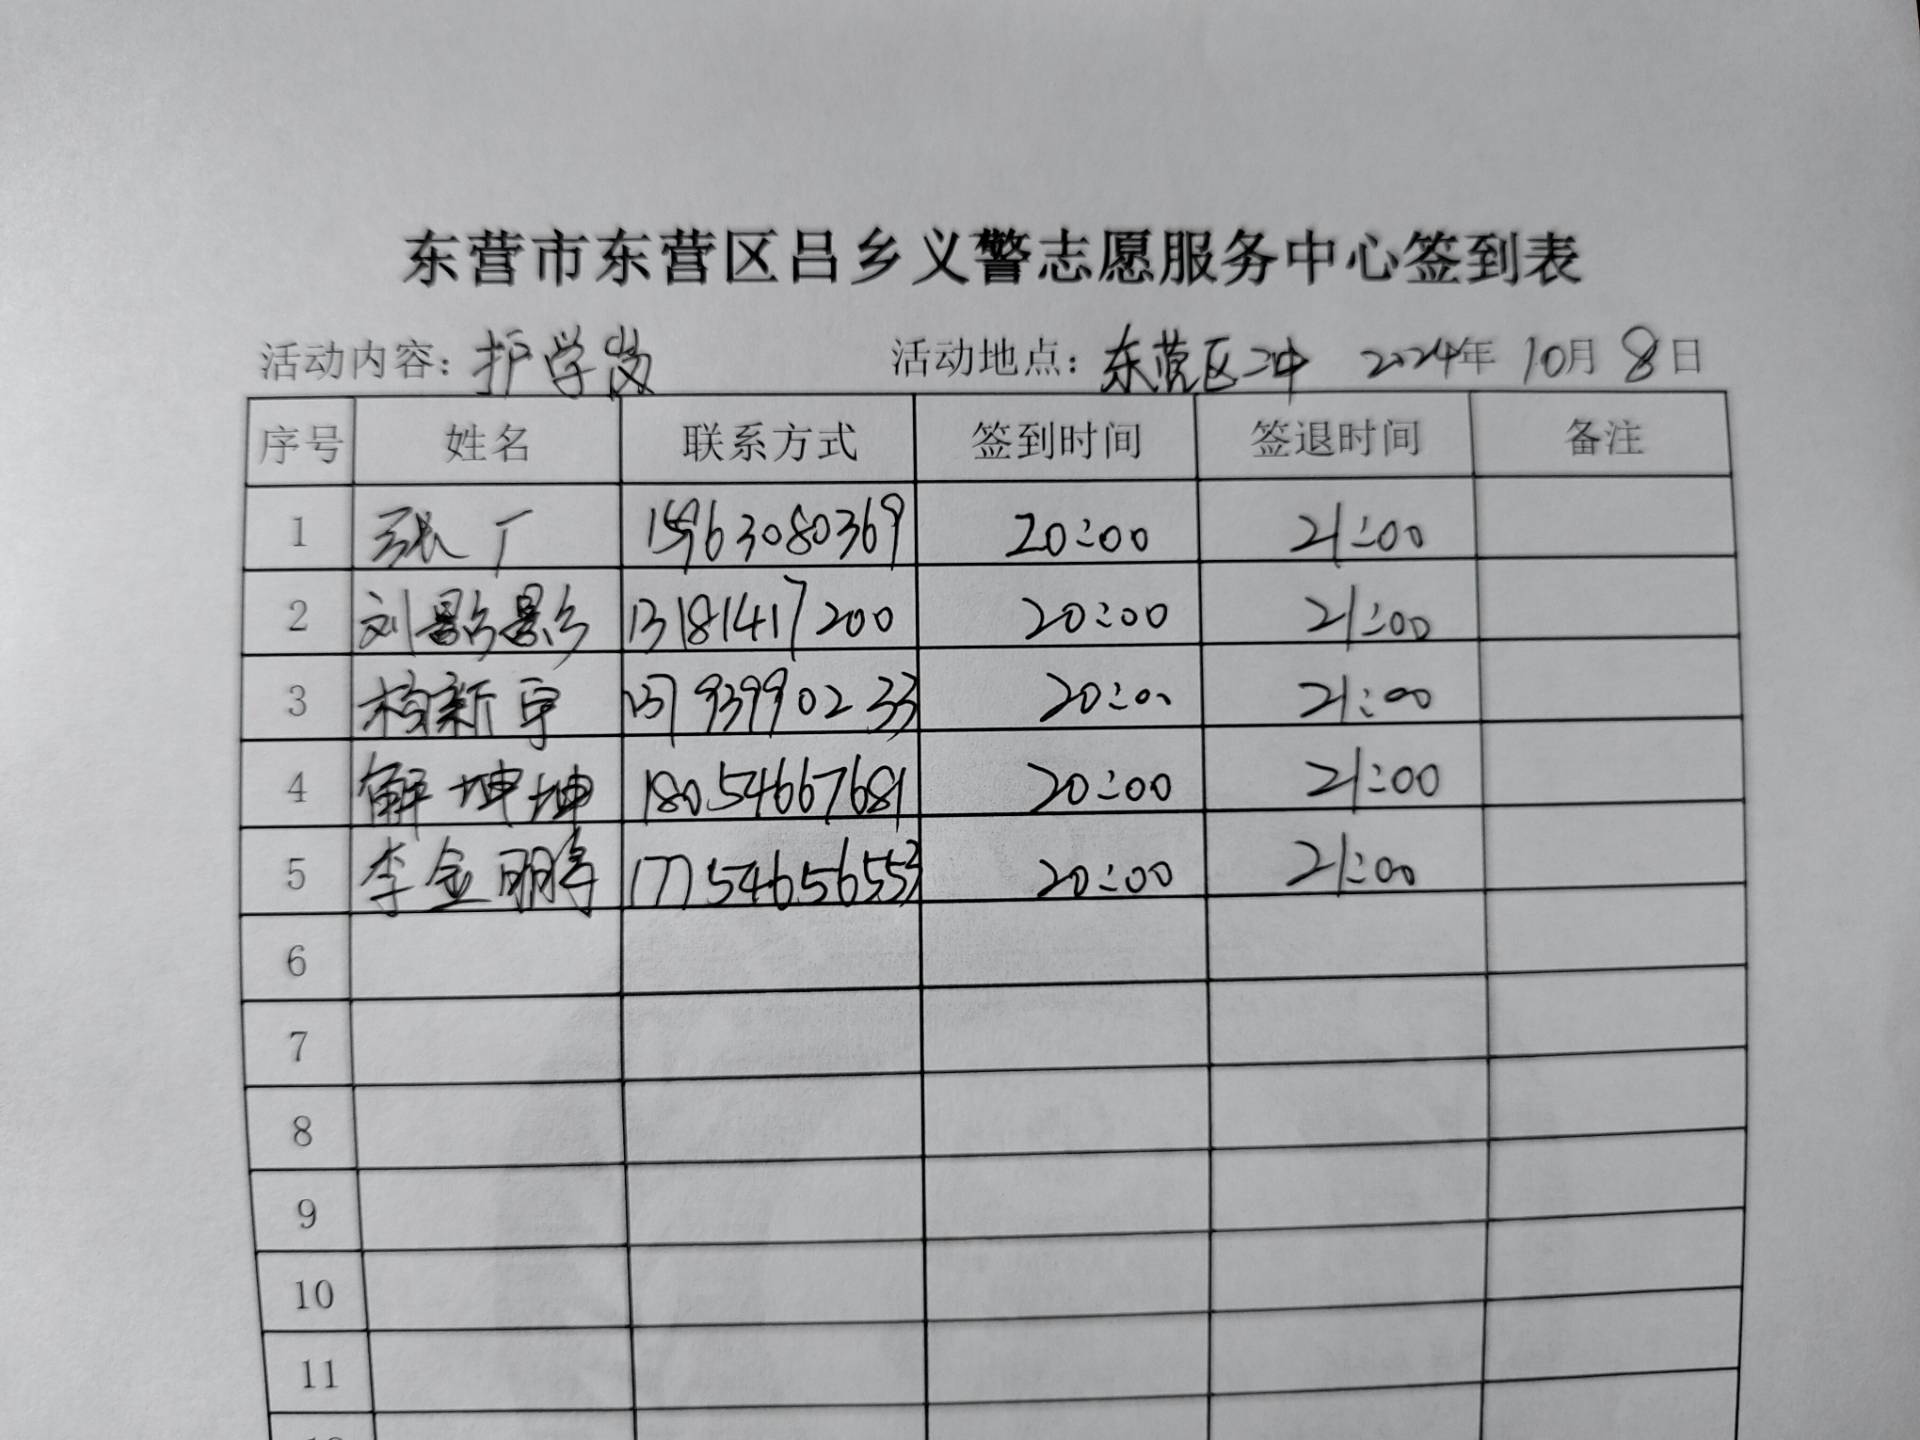 东营市东营区吕乡义警志愿服务中心签到表
活动内容：护学岗 活动地点：东营区二中 2024年 10月 8日
序号 姓名 联系方式 签到时间 签退时间 备注
1 张广 15963080369 20:00 21:00
2 刘影影 13181417200 20:00 21:00
3 杨新宇 20:00 21:00
4 解坤坤 18054667681 20:00 21:00
5 李金鹏 17754656553 20:00 21:00
6
7
8
9
10
11